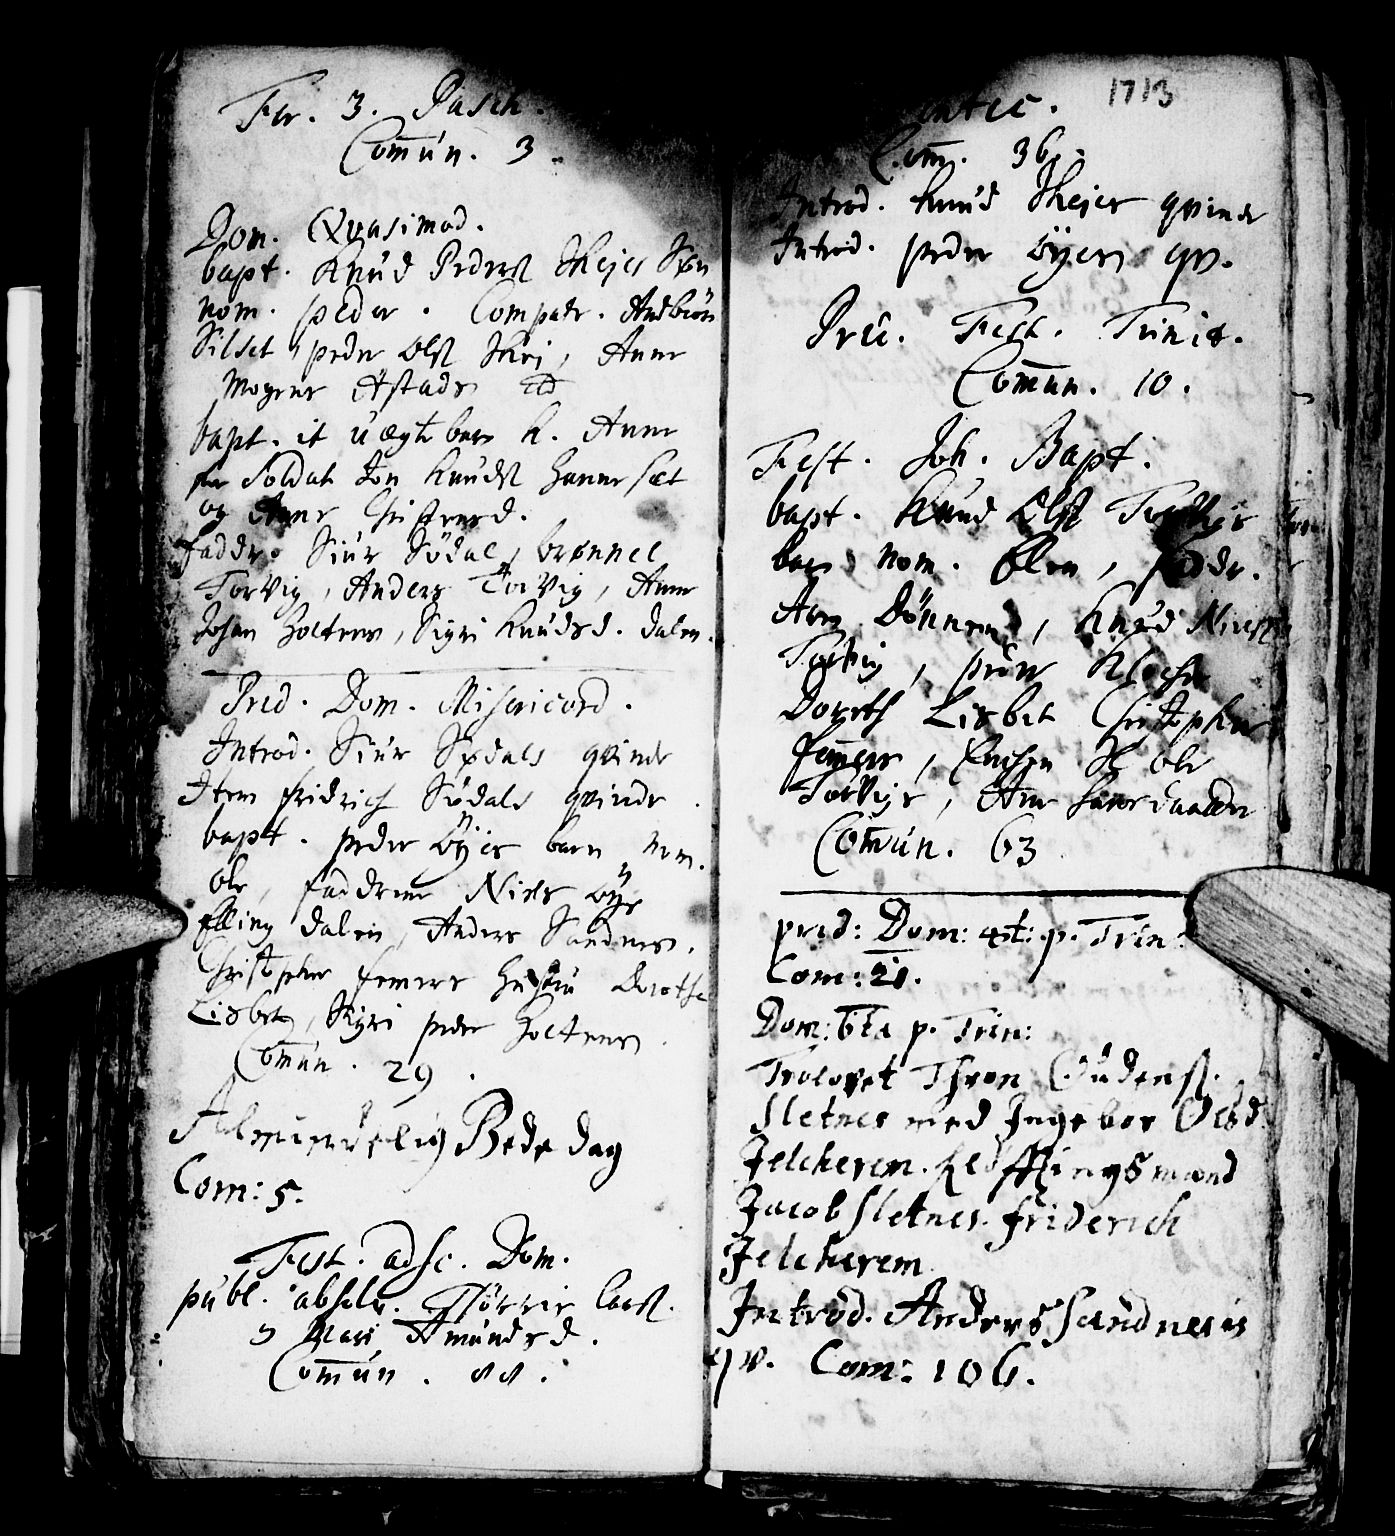 Fer. 3. Pasch.
Com̄un. 3.
Dom. Qvasimod.
bapt. Knud Peders. Skejes Søn
nom. peder. Compatr. Andbiør
Silset, peder Ols. Skej, Anne
Mogens Astads
bapt. it uægte barn k. Anne
for Soldat Jon Knuds. Hanneset
og Anne Christensd.
faddr. Siur Södal, brønnel
Torvig, Anders Torvig, Anne
Johan Holtens, Sigri Knudsd. dalen.
Pred. Dom. Misericord.
Introd. Siur Sødals qvinde
Item fridrich Södals qvinde.
bapt. peder Öÿes barn nom.
ole, faddrene Niels Öÿe
Elling dalen, Anders Sandnes,
Christopher femers hustru Dorothe
Lisbet, Sigri peder Holtens.
Com̄un. 29.
Almindelig Bededag
Com: 5.
Fest. adsc. Dom.
publ. absolv. Lars.
Mari Amundsd.
Com̄un. 88.
1713
Com̄. 36.
Introd. Knud Skejes qvinde
Introd. peder Öÿens qv.
Prid. Fest. Trinit.
Com̄un. 10.
Fest. Joh. Bapt.
bapt. Knud Ols.
barn nom. Olen, faddr.
Aren Dönnem, Knud Niels.
Torvig, peder
Doroth Lisbet Christopher
femers, Ole
Torvigs, Ane
Com̄un. 63
pred: Dom: 4t: p. Trin:
Com: 21.
Dom: 6ta p. Trin:
Trolovet Thron Gudens.
Sletnes med Ingebor Olsd.
Jelcherem. Forlofftningsmænd
Jacob Sletnes. friderich
Jelcherem
Introd. Anders Sandnesis
qv. Com: 106.